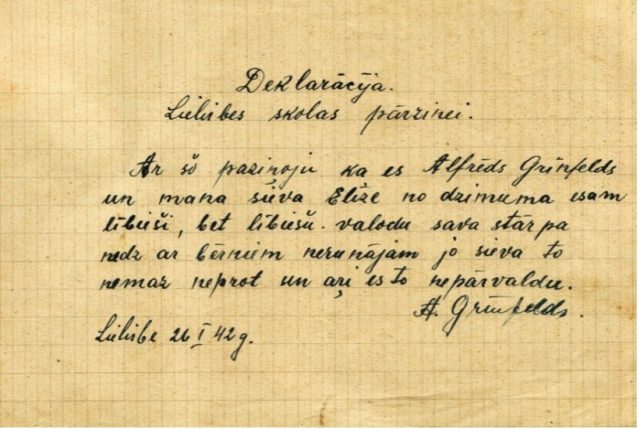 Deklarācija.
Lielirbes skolas pārzinei.
Ar šo paziņoju ka es Alfrēds Grīnfelds
un mana sieva Elīze no dzimuma esam
lībieši, bet lībiešu valodu sava starpa
nedz ar bērniem nerunājam jo sieva to
nemaz neprot un aŗi es to nepārvaldu.
A. Grīnfelds.
Lielirbe 26 I 42 g.